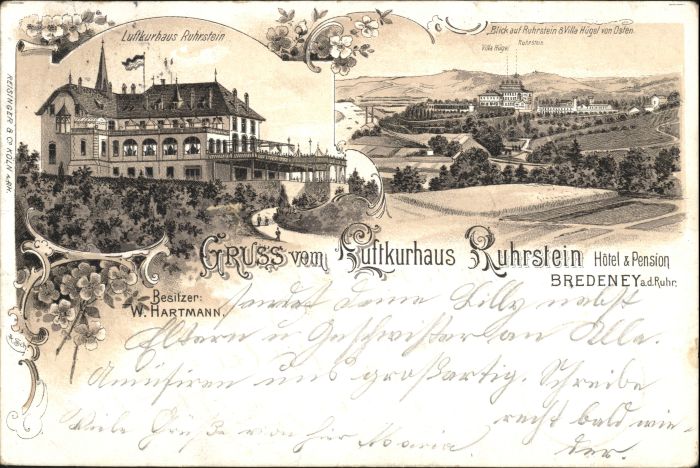 Luftkurhaus Ruhrstein
Blick auf Ruhrstein & Villa Hügel von Osten.
Villa Hügel
Ruhrstein
REISINGER & Co KÖLN a.Rh.
GRUSS vom Luftkurhaus Ruhrstein Hôtel & Pension
BREDENEY a.d. Ruhr.
Besitzer:
W. HARTMANN.
sendet Deine Lilly nebst
Eltern u Geschwister an Alle.
Amüsiren uns großartig. Schreibe
recht bald wie-
der.
Viele Grüße von hier Maria.